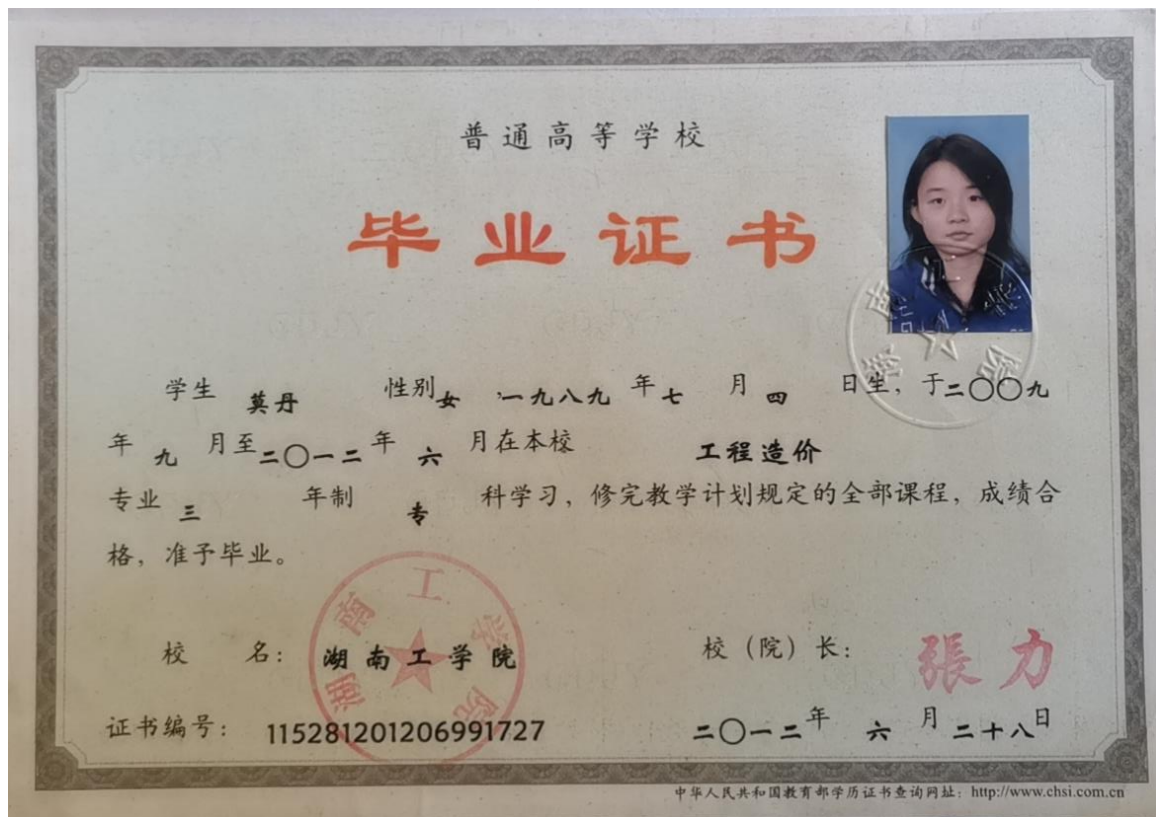 普通高等学校
毕业证书
学生 莫丹 性别女，一九八九年七月四日生，于二〇〇九
年九月至二〇一二年六月在本校 工程造价
专业三年制专科学习，修完教学计划规定的全部课程，成绩合
格，准予毕业。
校名：湖南工学院 校（院）长：張力
湖南工学院
证书编号：115281201206991727 二〇一二年六月二十八日
中华人民共和国教育部学历证书查询网址：http://www.chsi.com.cn